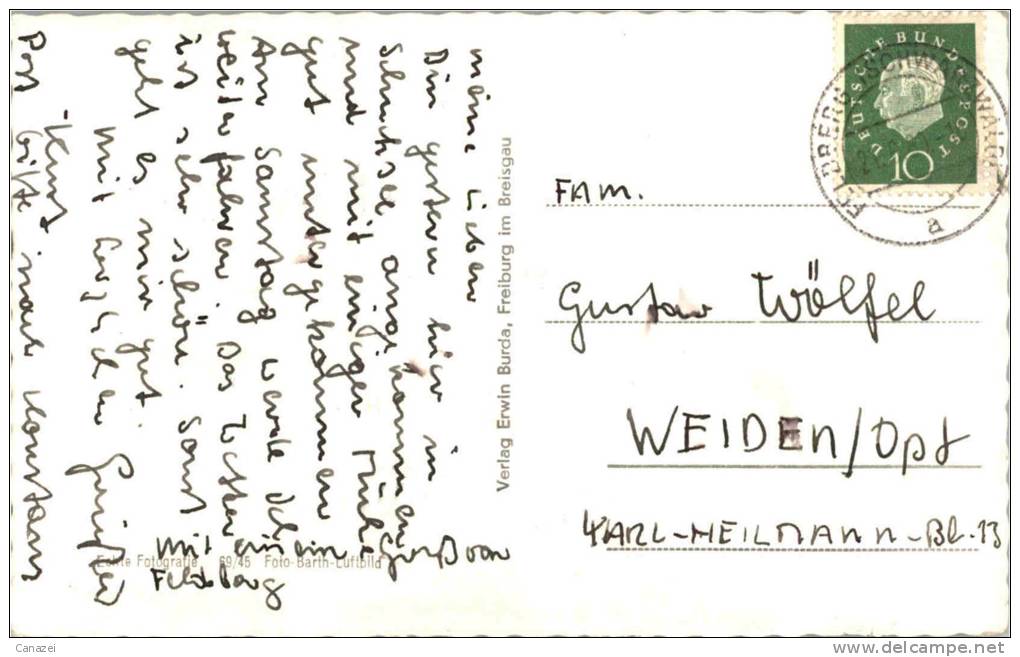 meine Lieben
Bin gestern hier in
Schluchsee angekommen
und mit einiger Mühe
gut untergekommen
Am Samstag werde ich
weiterfahren. Das Wetter
ist sehr schön. Sonst
geht es mir gut.
Mit herzlichen Grüßen
-Kurt
Post bitte nach Konstanz
Mit einem Gruß vom
Feldberg
Echte Fotografie 69/45 Foto-Barth-Luftbild
Verlag Erwin Burda, Freiburg im Breisgau
DEUTSCHE BUNDESPOST
10
FELDBERG (SCHWARZWALD)
a
FAM.
Gustav Wölfel
WEIDEN/Opf
KARL-HEILMANN-Bl-13
Canazei
delcampe.net